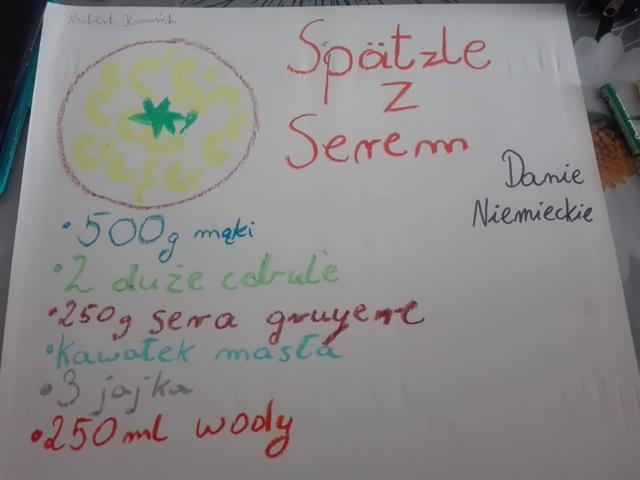 Norbert Kamiński
Spätzle
z
Serem
Danie
Niemieckie
•500g mąki
•2 duże cebule
•250g sera gruyere
•Kawałek masła
•3 jajka
•250ml wody